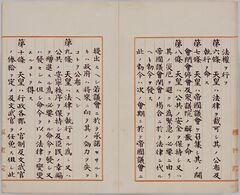 法權ヲ行フ
第六條 天皇ハ法律ヲ裁可シ其ノ公布及
執行ヲ命ス
第七條 天皇ハ帝國議會ヲ召集シ其ノ開
會閉會停會及衆議院ノ解散ヲ命ス
第八條 天皇ハ公共ノ安全ヲ保持シ又ハ
其ノ災厄ヲ避クル為緊急ノ必要ニ由リ
帝國議會閉會ノ場合ニ於テ法律ニ代ル
ヘキ勅令ヲ發ス
此ノ勅令ハ次ノ會期ニ於テ帝國議會ニ
提出スヘシ若議會ニ於テ承諾セサルト
キハ政府ハ將來ニ向テ其ノ効力ヲ失フ
コトヲ公布スヘシ
第九條 天皇ハ法律ヲ執行スル為ニ又ハ
公共ノ安寧秩序ヲ保持シ及臣民ノ幸福
ヲ增進スル為ニ必要ナル命令ヲ發シ又
ハ發セシム但シ命令ヲ以テ法律ヲ變更
スルコトヲ得ス
第十條 天皇ハ行政各部ノ官制及文武官
ノ俸給ヲ定メ及文武官ヲ任免ス但シ此